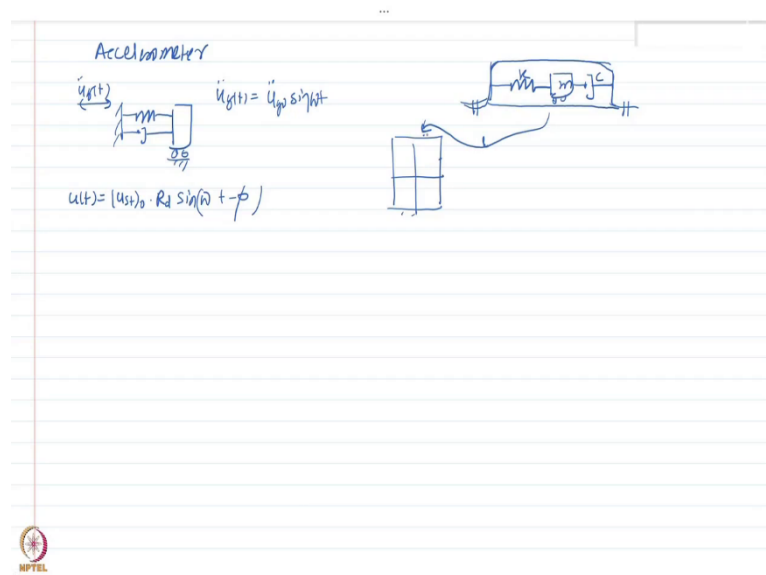 Accelerometer
ü_g(t)
ü_g(t) = ü_g0 sin ωt
k m c
u(t) = (u_st)_0 · R_d sin(ω t - φ)
NPTEL